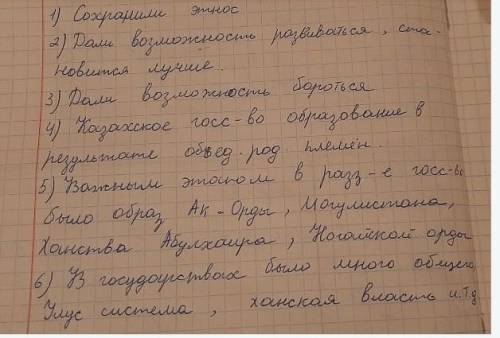 1) Сохранили этнос
2) Дали возможность развиваться, ста-
новится лучше.
3) Дали возможность бороться
4) Казахское госс-во образование в
результате объед. род племён.
5) Важным этапом в разз-е госс-вы
было образ, Ак-Орды, Могулистана,
Ханства Абулхаира, Ногайской орды
6) В государствах было много общего
Улус система, ханская власть и.т.д